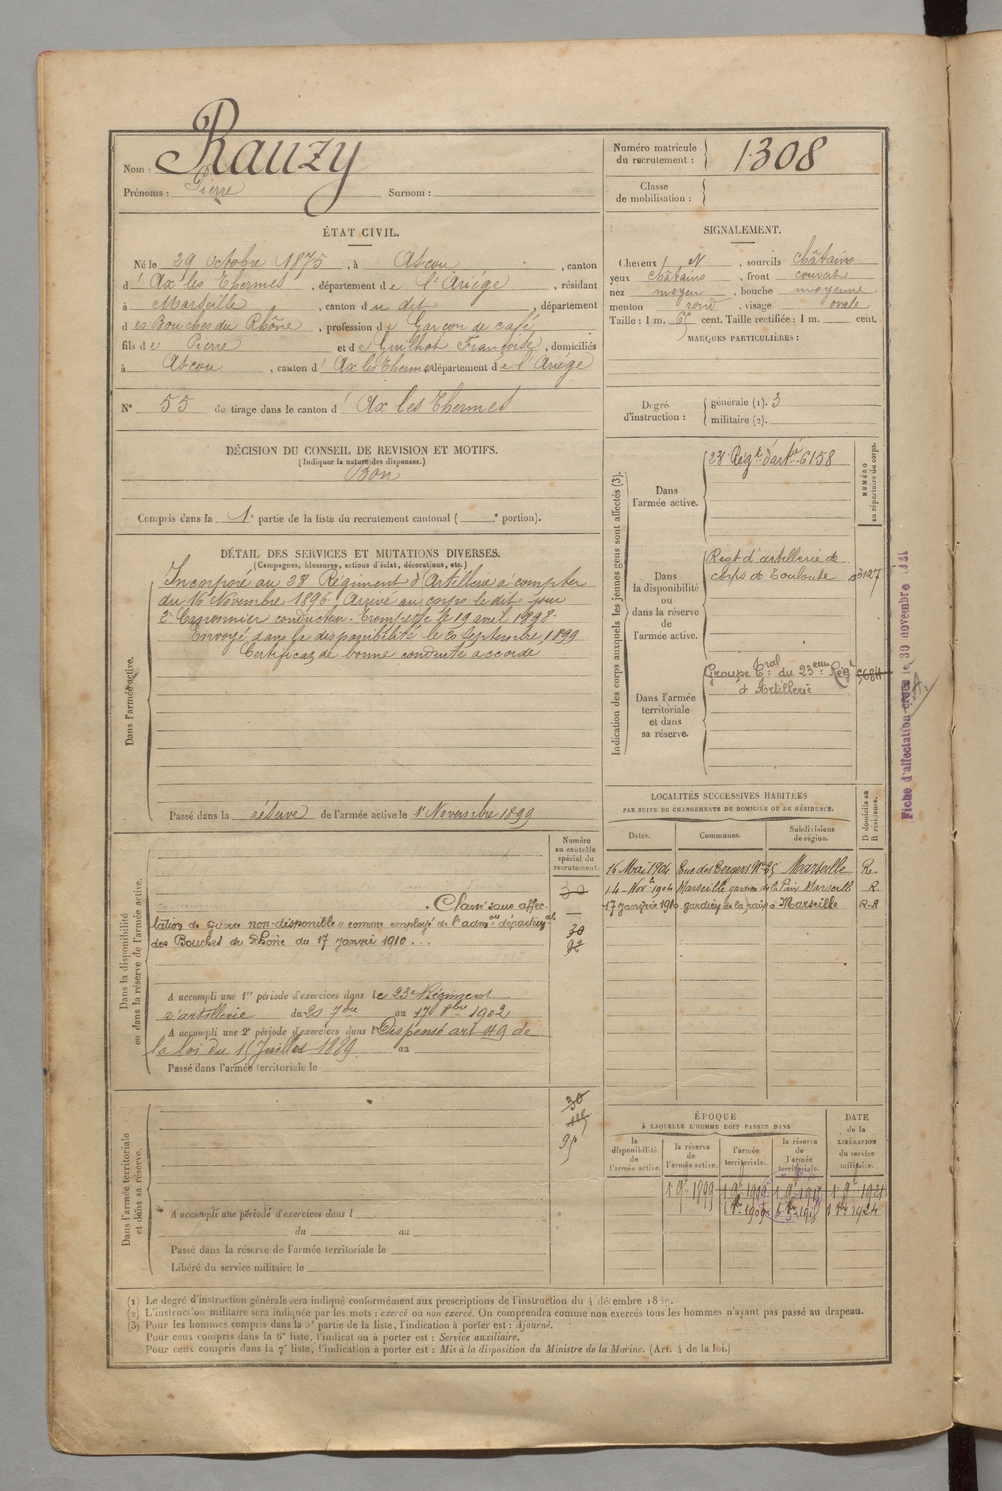 Nom : Rauzy
Prénoms : Pierre Surnom :
ÉTAT CIVIL.
Né le 29 Octobre 1875, à Ascou, canton
d' Ax les Thermes, département de l'Ariège, résidant
à Marseille, canton du dit, département
des Bouches du Rhône, profession de Garçon de café,
fils de Pierre et de Guilhot Françoise, domiciliés
à Ascou, canton d' Ax les Thermes département de l'Ariége
N° 55 de tirage dans le canton d' Ax les Thermes
DÉCISION DU CONSEIL DE REVISION ET MOTIFS.
(Indiquer la nature des dispenses.)
Bon
Compris dans la 1e partie de la liste du recrutement cantonal ( e portion).
DÉTAIL DES SERVICES ET MUTATIONS DIVERSES.
(Campagnes, blessures, actions d'éclat, décorations, etc.)
Dans l'armée active.
Incorporé au 23e Régiment d'Artillerie à compter
du 16 Novembre 1896. Arrivé au corps le dit jour
2e Canonnier conducteur. Trompette le 19 avril 1898.
Envoyé dans la disponibilité le Septembre 1899
Certificat de bonne conduite accordé
Passé dans la réserve de l'armée active le 1er Novembre 1899
Dans la disponibilité
ou dans la réserve de l'armée active.
Numéro
au contrôle
spécial du
recrutement.
30
Classé sans affec-
tation de guerre "non-disponible" comme employé de l'admon départemale
des Bouches du Rhône du 17 janvier 1910...
30
A accompli une 1re période d'exercices dans le 23e Régiment
d'artillerie du 21 7bre au 17 8bre 1902
A accompli une 2e période d'exercices dans l Dispensé art 49 de
la loi du 15 Juillet 1889 au
Passé dans l'armée territoriale le
Dans l'armée territoriale
et dans sa réserve.
30
A accompli une période d'exercices dans l
du au
Passé dans la réserve de l'armée territoriale le
Libéré du service militaire le
Numéro matricule
du recrutement : 1308
Classe
de mobilisation :
SIGNALEMENT.
Cheveux N, sourcils châtains
yeux châtains, front couvert
nez moyen, bouche moyenne
menton rond, visage ovale
Taille : 1 m. 65 cent. Taille rectifiée : 1 m. cent.
MARQUES PARTICULIÈRES :
Degré
d'instruction :
générale (1). 3
militaire (2).
Indication des corps auxquels les jeunes gens sont affectés (3).
NUMÉRO
au répertoire du corps.
Dans
l'armée active.
23e Régt d'artie 6158
Dans
la disponibilité
ou
dans la réserve
de
l'armée active.
Regt d'artillerie de
corps de Toulouse 03127
Dans l'armée
territoriale
et dans
sa réserve.
Groupe Tral du 23eme Régt 5684
d'Artillerie
Fiche d'affectation créée le 30 novembre 1921
LOCALITÉS SUCCESSIVES HABITÉES
PAR SUITE DE CHANGEMENTS DE DOMICILE OU DE RÉSIDENCE.
Dates. Communes. Subdivisions
de région. D domicile ou
R résidence.
16 Mai 1904 Rue des Bergers No 25 Marseille R.
14 Nov 1904 Marseille gardien de la Paix Marseille R
17 janvier 1910 gardien de la paix à Marseille R-A
ÉPOQUE
À LAQUELLE L'HOMME DOIT PASSER DANS
la
disponibilité
de
l'armée active.
la réserve
de
l'armée active.
l'armée
territoriale.
la réserve
de
l'armée
territoriale.
DATE
de la
LIBÉRATION
du service
militaire.
1 9e 1899 1 9e 1909 1 9e 1915 1 9e 1921
1 8bre 1909 1 8bre 1915 1 8bre 1924
(1) Le degré d'instruction générale sera indiqué conformément aux prescriptions de l'instruction du 4 décembre 1889.
(2) L'instruction militaire sera indiquée par les mots : exercé ou non exercé. On comprendra comme non exercés tous les hommes n'ayant pas passé au drapeau.
(3) Pour les hommes compris dans la 5e partie de la liste, l'indication à porter est : Ajourné.
Pour ceux compris dans la 6e liste, l'indication à porter est : Service auxiliaire.
Pour ceux compris dans la 7e liste, l'indication à porter est : Mis à la disposition du Ministre de la Marine. (Art. 4 de la loi.)